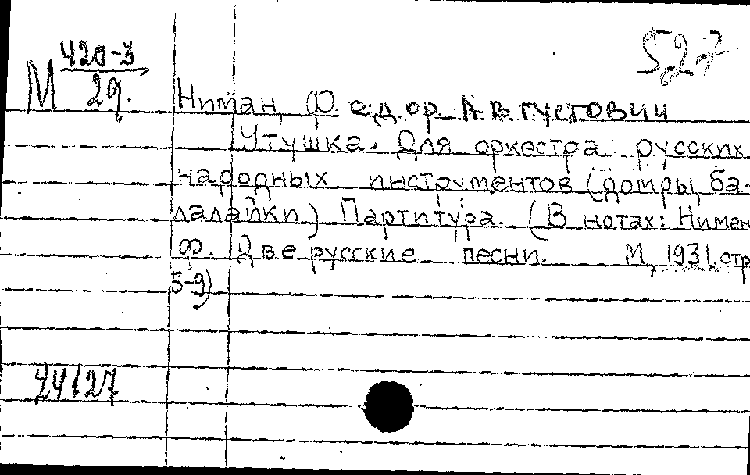 527
М 420-3
29.
Ниман, Федор Августович
Утушка. Для оркестра русских
народных инструментов (домры, ба-
лалайки) Партитура. (В нотах: Ниман
Ф. Две русские песни. М, 1931, стр
5-9)
44127